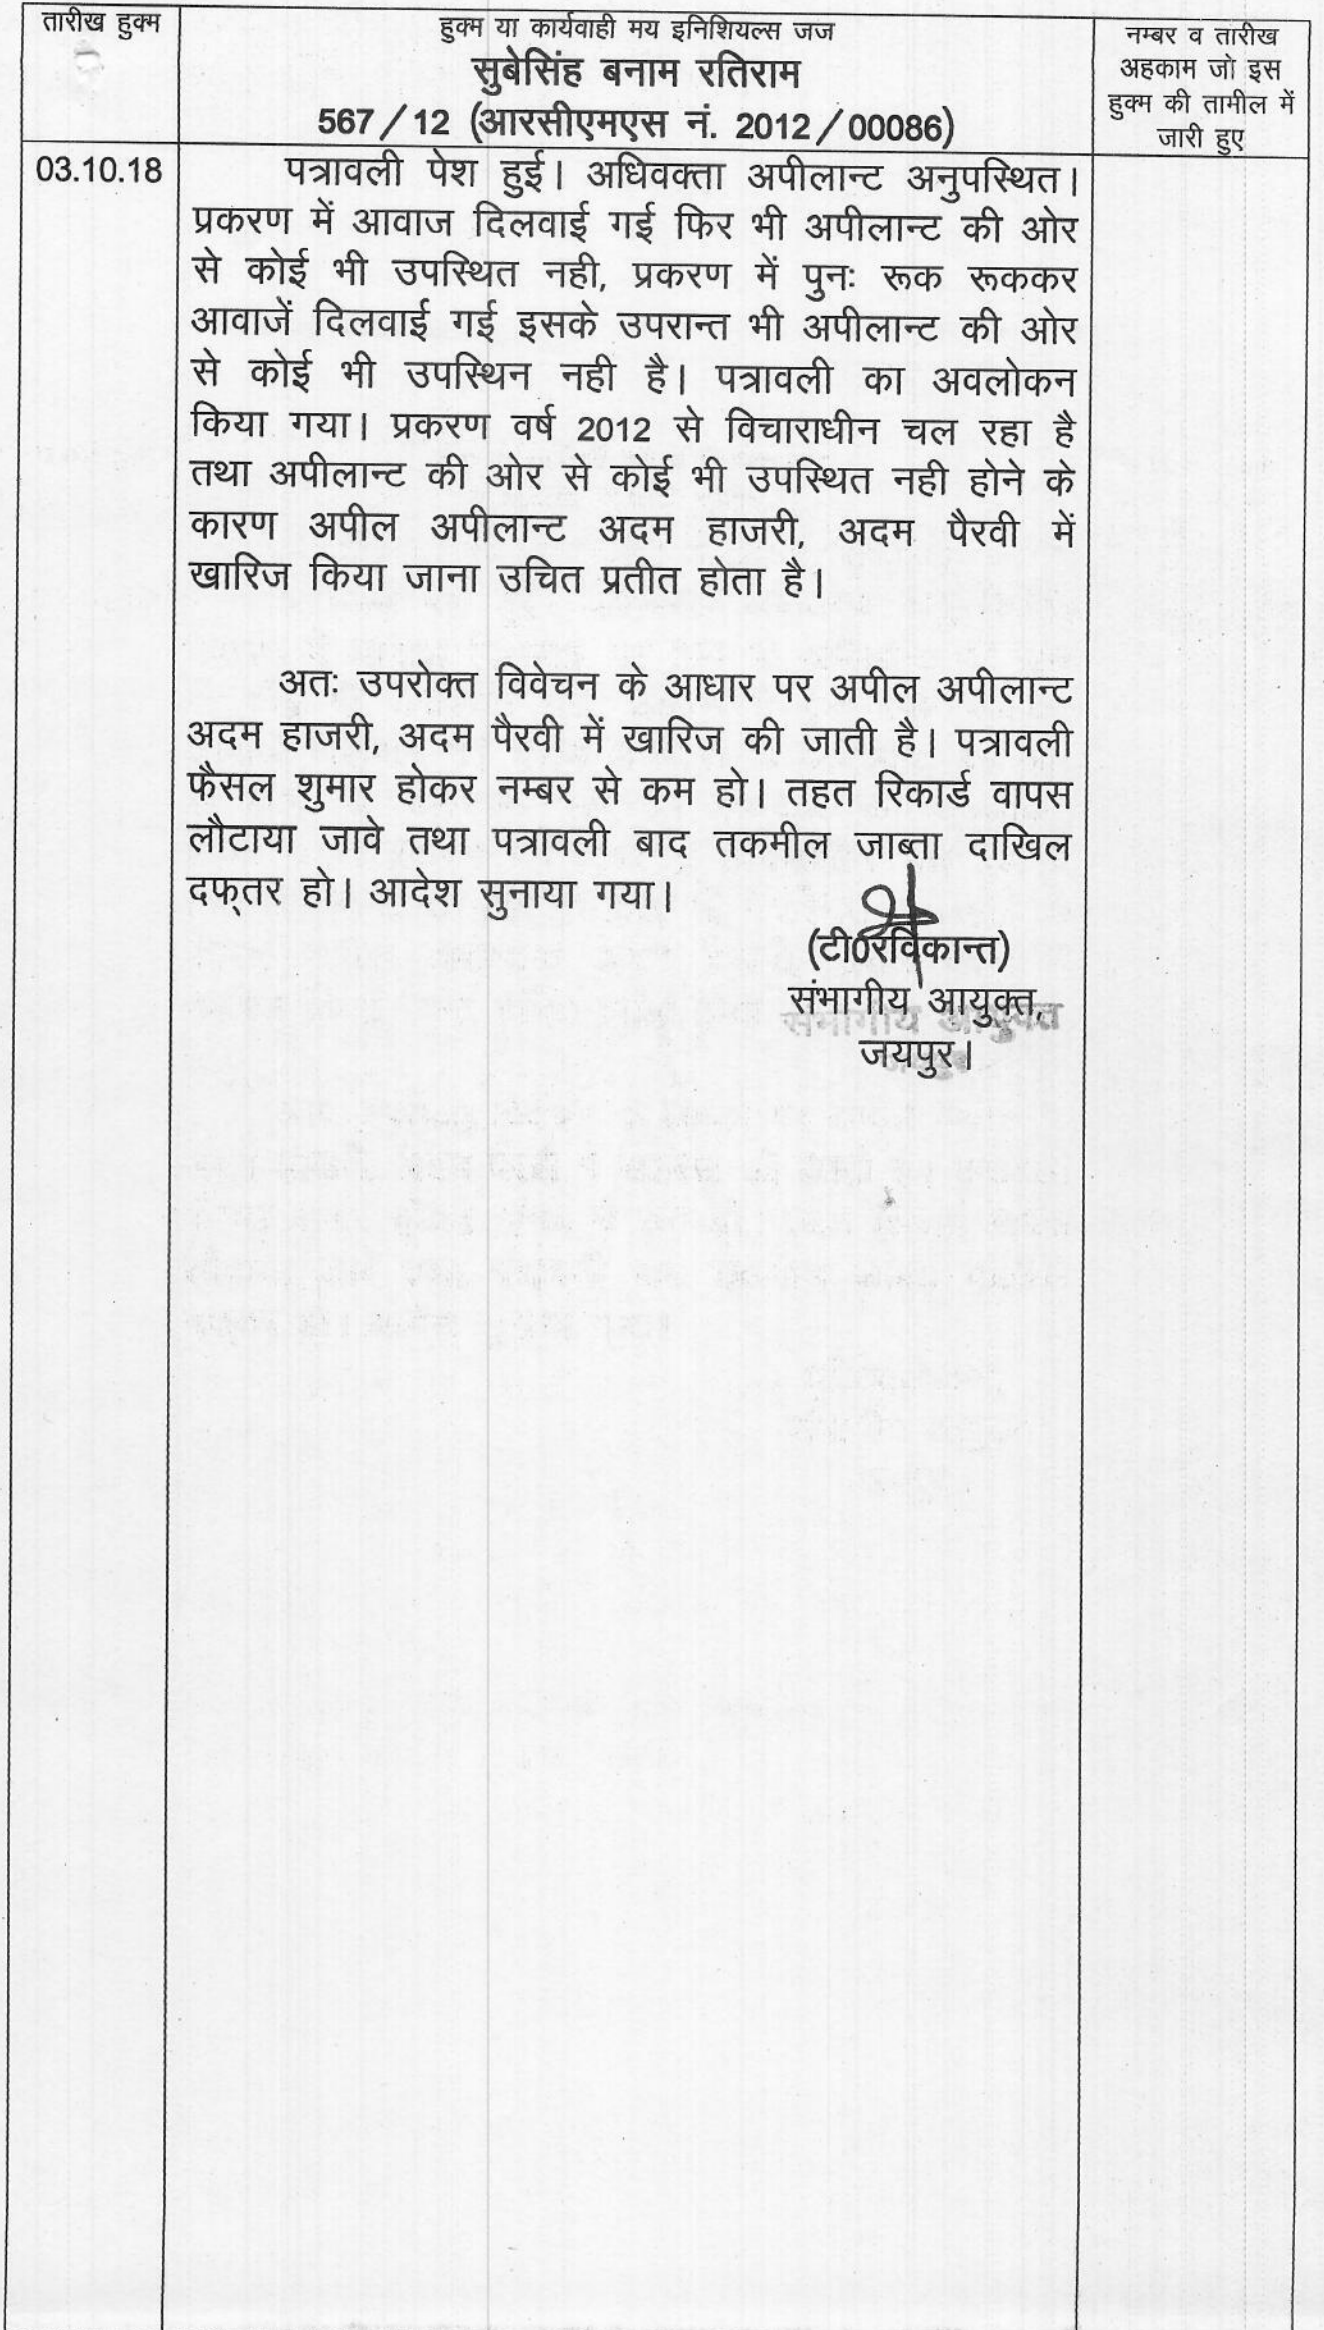 तारीख हुक्म
हुक्म या कार्यवाही मय इनिशियल्स जज
सुबेसिंह बनाम रतिराम
567/12 (आरसीएमएस नं. 2012/00086)
नम्बर व तारीख
अहकाम जो इस
हुक्म की तामील में
जारी हुए
03.10.18
पत्रावली पेश हुई। अधिवक्ता अपीलान्ट अनुपस्थित।
प्रकरण में आवाज दिलवाई गई फिर भी अपीलान्ट की ओर
से कोई भी उपस्थित नही, प्रकरण में पुनः रूक रूककर
आवाजें दिलवाई गई इसके उपरान्त भी अपीलान्ट की ओर
से कोई भी उपस्थिन नही है। पत्रावली का अवलोकन
किया गया। प्रकरण वर्ष 2012 से विचाराधीन चल रहा है
तथा अपीलान्ट की ओर से कोई भी उपस्थित नही होने के
कारण अपील अपीलान्ट अदम हाजरी, अदम पैरवी में
खारिज किया जाना उचित प्रतीत होता है।
अतः उपरोक्त विवेचन के आधार पर अपील अपीलान्ट
अदम हाजरी, अदम पैरवी में खारिज की जाती है। पत्रावली
फैसल शुमार होकर नम्बर से कम हो। तहत रिकार्ड वापस
लौटाया जावे तथा पत्रावली बाद तकमील जाब्ता दाखिल
दफ्तर हो। आदेश सुनाया गया।
(टी0रविकान्त)
संभागीय आयुक्त,
संभागीय आयुक्त
जयपुर।